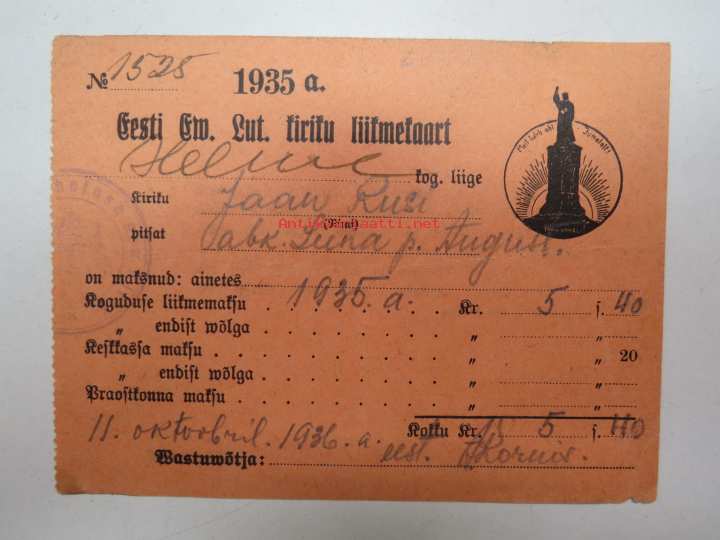 № 1525 1935 a.
Eesti Ew. Lut. kiriku liikmekaart
Helme kog. liige
Kiriku Jaan Kusi
(Nimi)
pitsat abk. Leena p. August.
on maksnud: ainetes
Koguduse liikmemaksu 1935. a. Kr. 5 s. 40
„ endist wõlga „ „
Keskkassa maksu „ „ 20
„ endist wõlga „ „
Praostkonna maksu „ „
11. oktoobril. 1936. a. Kokku Kr. 5 s. 40
Wastuwõtja: eest.